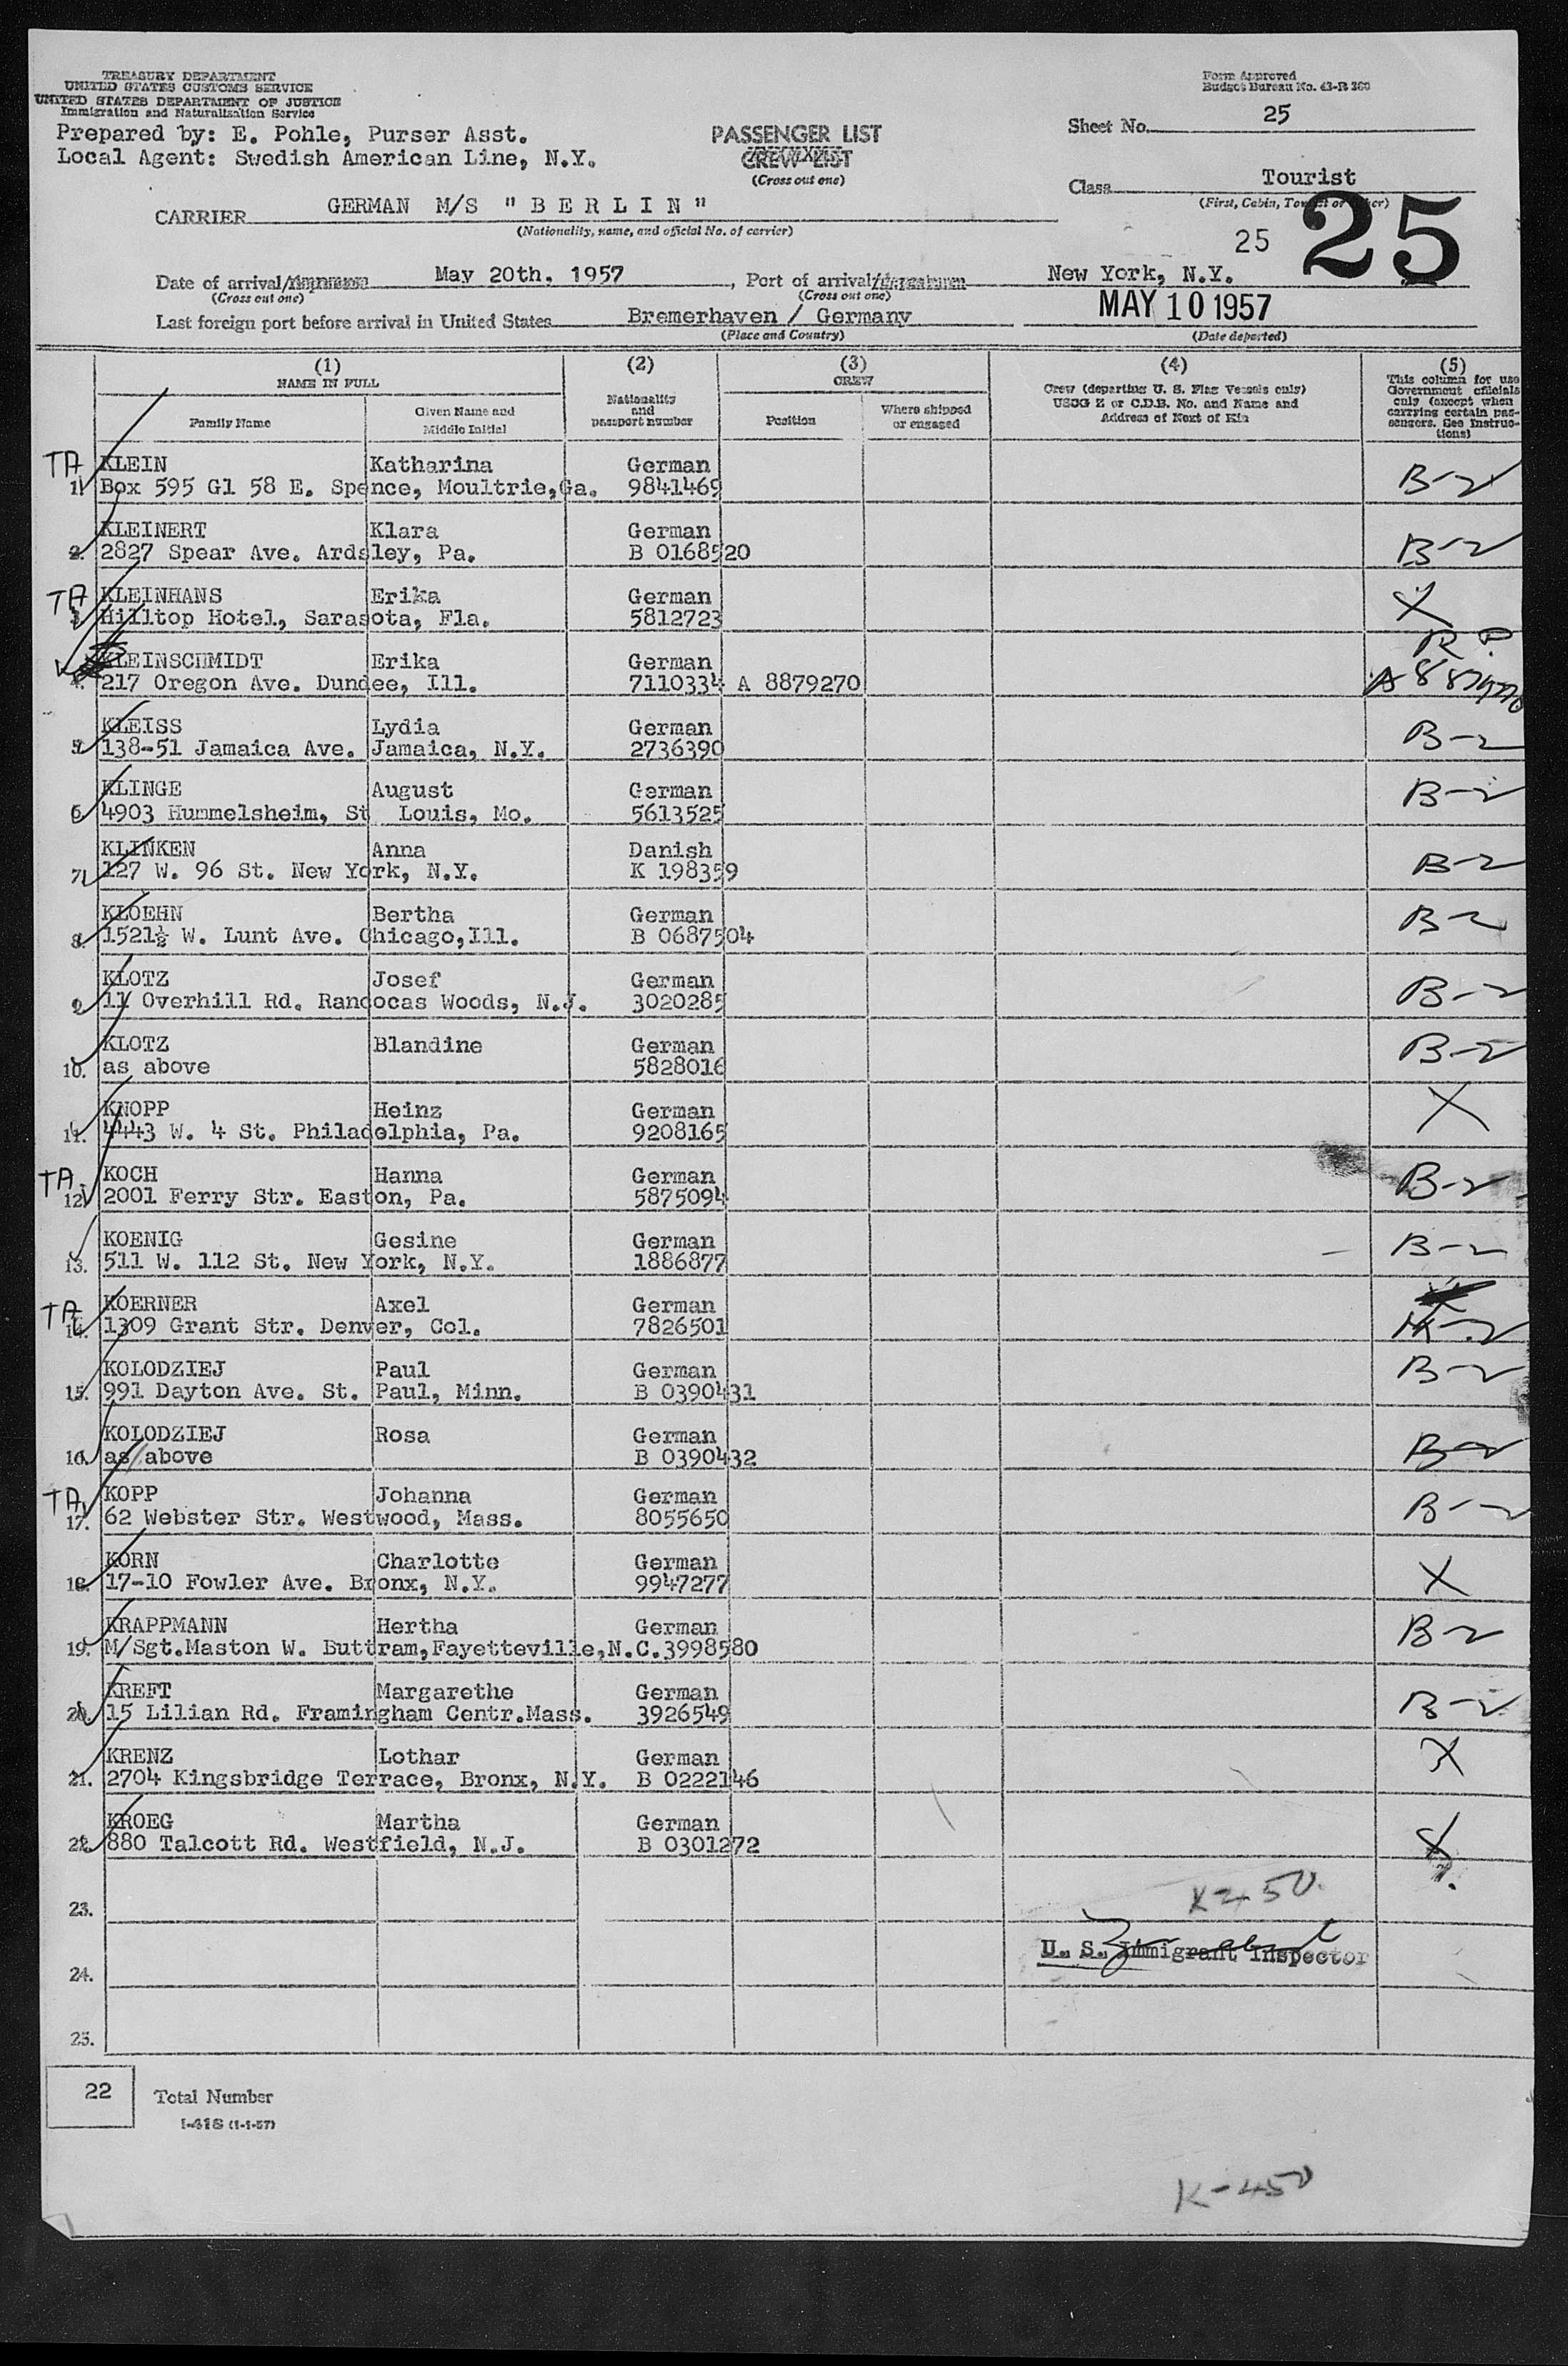 TREASURY DEPARTMENT
UNITED STATES CUSTOMS SERVICE
UNITED STATES DEPARTMENT OF JUSTICE
Immigration and Naturalization Service
Prepared by: E. Pohle, Purser Asst.
Local Agent: Swedish American Line, N.Y.
PASSENGER LIST
CREW LIST
(Cross out one)
Form Approved
Budget Bureau No. 43-R 360
Sheet No. 25
Class Tourist
(First, Cabin, Tourist or other)
CARRIER GERMAN M/S "BERLIN"
(Nationality, name, and official No. of carrier)
25 25
Date of arrival/ May 20th, 1957, Port of arrival/ New York, N.Y.
(Cross out one) (Cross out one)
Last foreign port before arrival in United States Bremerhaven / Germany MAY 10 1957
(Place and Country) (Date departed)
(1) (2) (3) (4) (5)
NAME IN FULL
Family Name
Given Name and Middle Initial
Nationality and passport number
CREW
Position
Where shipped or engaged
Crew (departing U. S. Flag Vessels only)
USCG Z or C.D.B. No. and Name and
Address of Next of Kin
This column for use
Government officials
only (except when
carrying certain pas-
sengers. See Instruc-
tions)
TA KLEIN Katharina German
1. Box 595 Gl 58 E. Spence, Moultrie,Ga. 9841469 B-2
KLEINERT Klara German
2. 2827 Spear Ave. Ardsley, Pa. B 0168520 B-2
TA KLEINHANS Erika German X
3. Hilltop Hotel, Sarasota, Fla. 5812723
KLEINSCHMIDT Erika German R.P.
4. 217 Oregon Ave. Dundee, Ill. 7110334 A 8879270 A 8879270
KLEISS Lydia German
5. 138-51 Jamaica Ave. Jamaica, N.Y. 2736390 B-2
KLINGE August German B-2
6. 4903 Hummelsheim, St Louis, Mo. 5613525
KLINKEN Anna Danish
7. 127 W. 96 St. New York, N.Y. K 198359 B-2
KLOEHN Bertha German B-2
8. 1521½ W. Lunt Ave. Chicago,Ill. B 0687504
KLOTZ Josef German
9. 11 Overhill Rd. Rancocas Woods, N.J. 3020285 B-2
KLOTZ Blandine German B-2
10. as above 5828016
KNOPP Heinz German X
11. 4443 W. 4 St. Philadelphia, Pa. 9208165
TA. KOCH Hanna German
12. 2001 Ferry Str. Easton, Pa. 5875094 B-2
KOENIG Gesine German
13. 511 W. 112 St. New York, N.Y. 1886877 B-2
TA KOERNER Axel German
14. 1309 Grant Str. Denver, Col. 7826501
KOLODZIEJ Paul German B-2
15. 991 Dayton Ave. St. Paul, Minn. B 0390431
KOLODZIEJ Rosa German
16. as above B 0390432 B-2
TA. KOPP Johanna German
17. 62 Webster Str. Westwood, Mass. 8055650 B-2
KORN Charlotte German
18. 17-10 Fowler Ave. Bronx, N.Y. 9947277 X
KRAPPMANN Hertha German
19. M/Sgt.Maston W. Buttram,Fayetteville,N.C.3998580 B-2
KREFT Margarethe German
20. 15 Lilian Rd. Framingham Centr.Mass. 3926549 B-2
KRENZ Lothar German X
21. 2704 Kingsbridge Terrace, Bronx, N.Y. B 0222146
KROEG Martha German
22. 880 Talcott Rd. Westfield, N.J. B 0301272 X
23.
U. S. Immigrant Inspector
24.
25.
22 Total Number
I-418 (1-1-57)
K-450